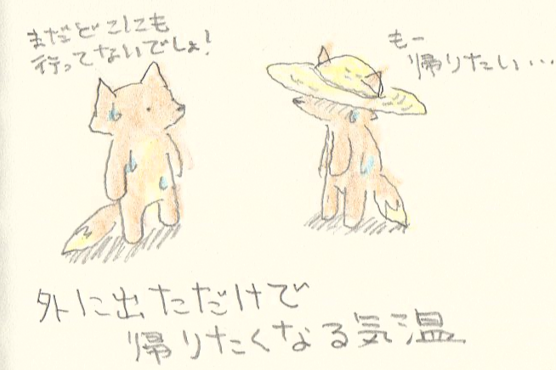 まだどこにも
行ってないでしょ!
もー
帰りたい…
外に出ただけで
帰りたくなる気温